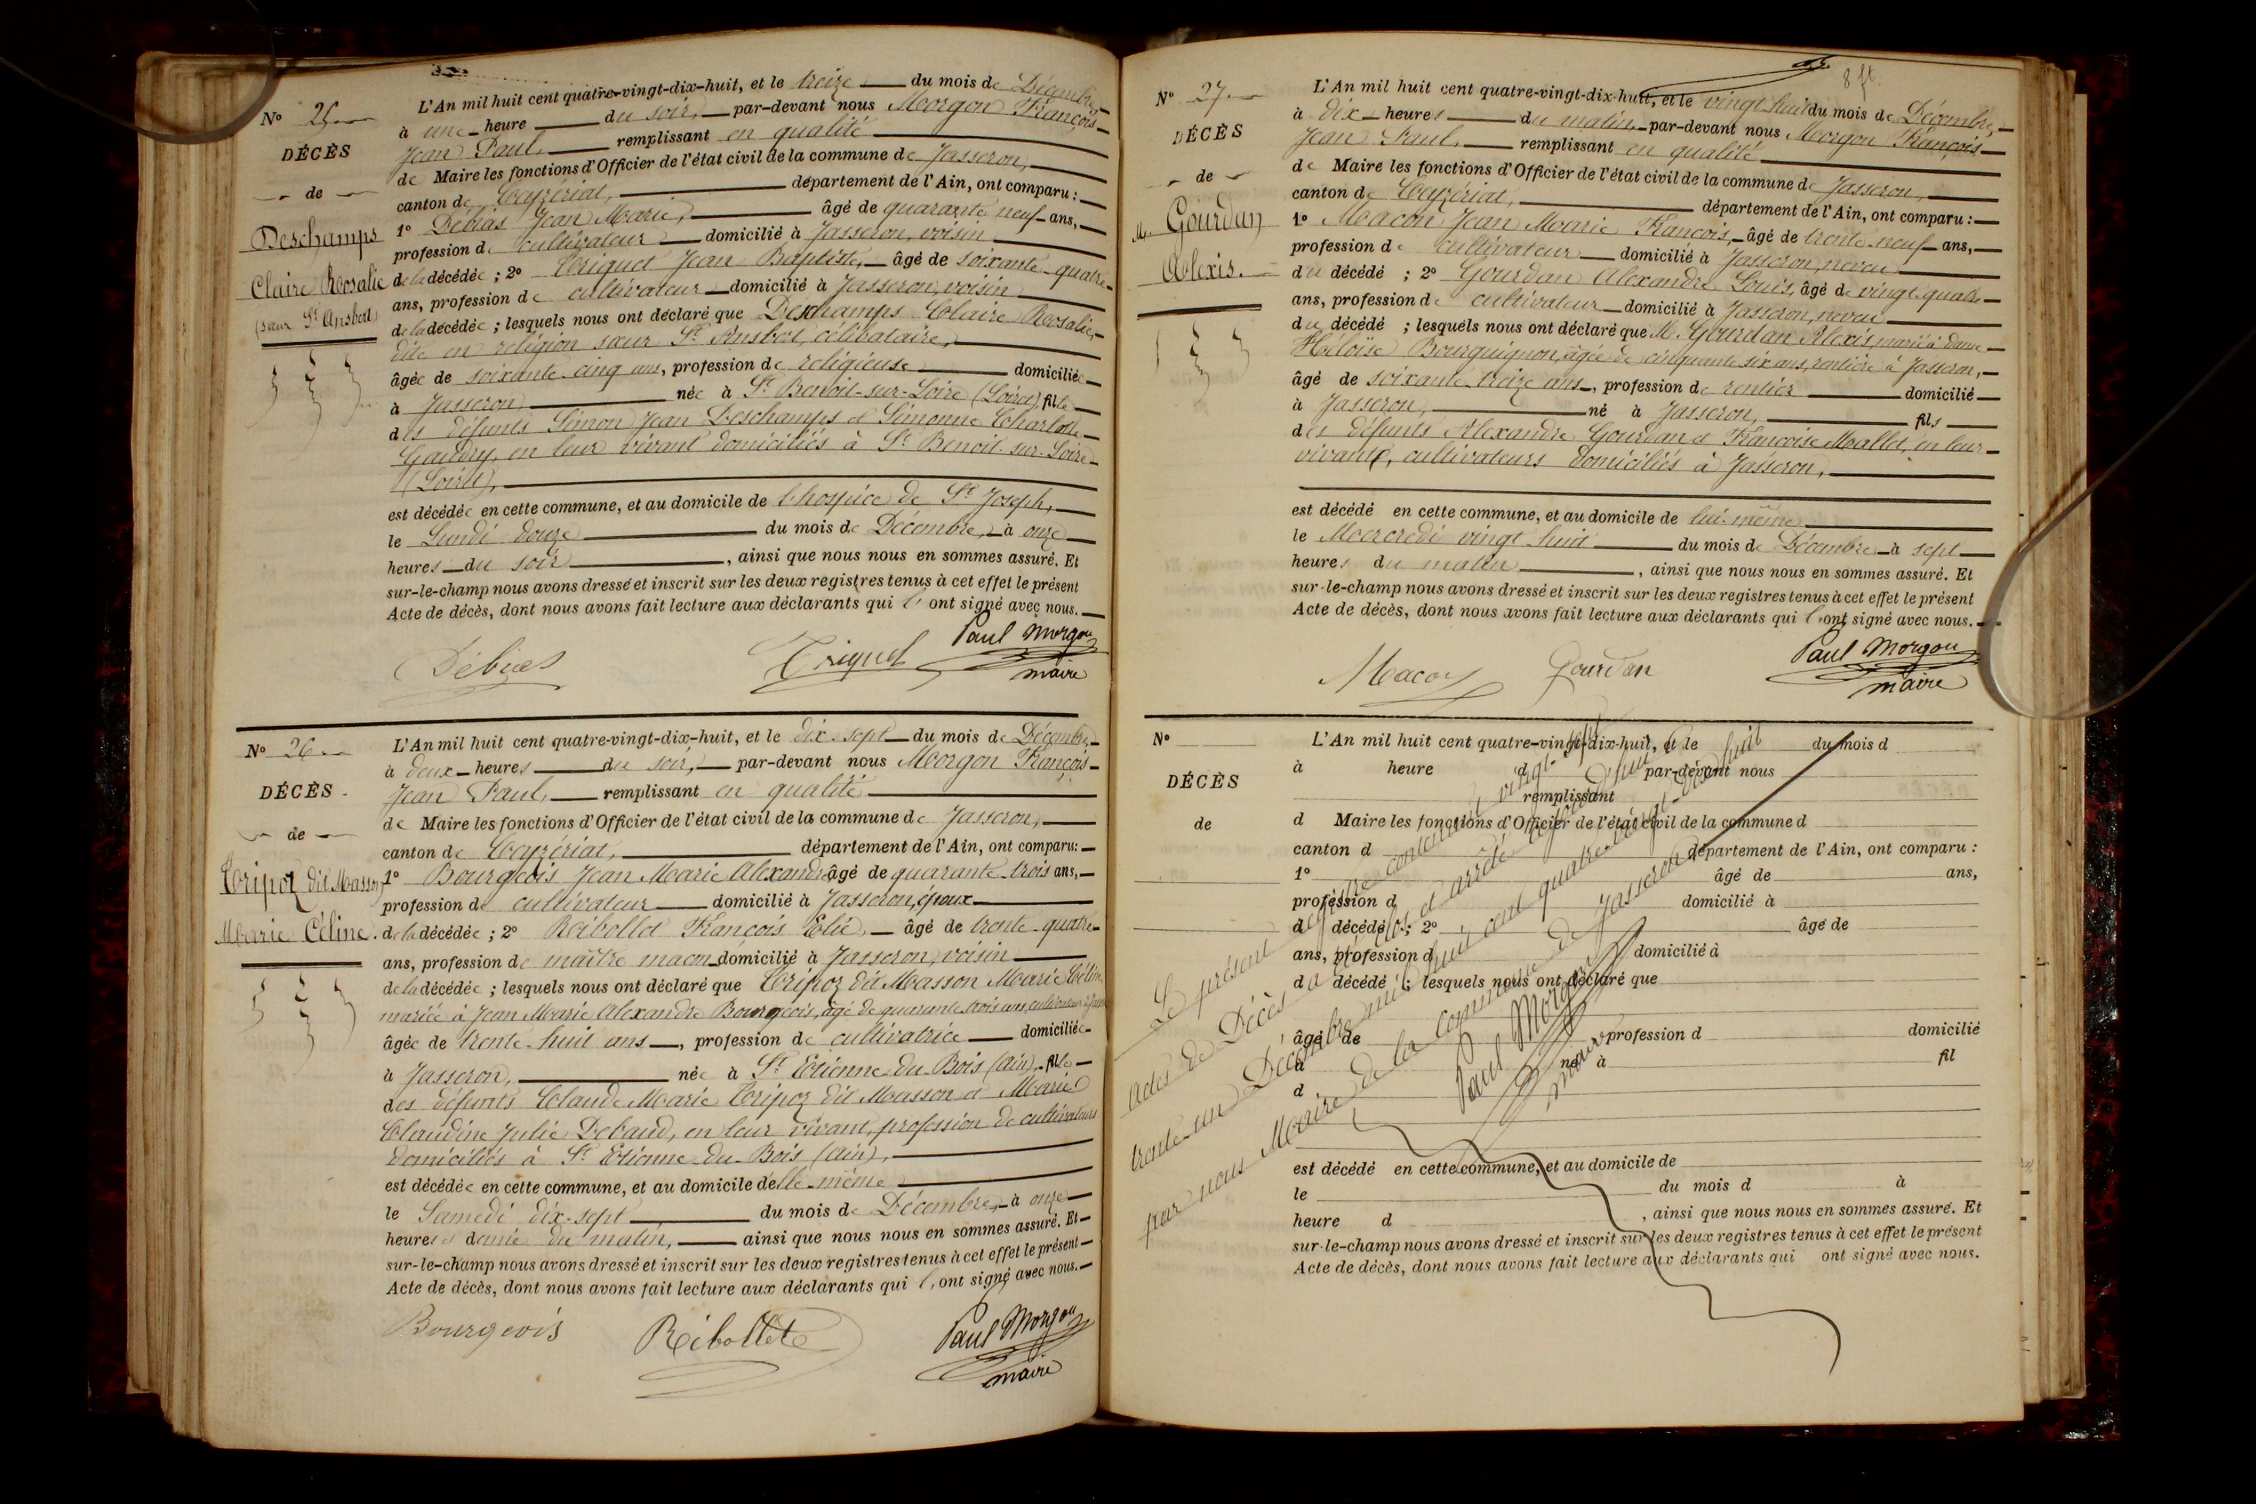 N° 25
DÉCÈS
de
Deschamps
Claire Rosalie
(sœur St Ansbert)
L'An mil huit cent quatre-vingt-dix-huit, et le treize du mois de Décembre
à une heure du soir, par-devant nous Morgon François
Jean Paul, remplissant en qualité
de Maire les fonctions d'Officier de l'état civil de la commune de Jasseron,
canton de Ceyzériat, département de l'Ain, ont comparu :
1° Débias Jean Marie, âgé de quarante neuf ans,
profession de cultivateur domicilié à Jasseron, voisin
de la décédée ; 2° Triquet Jean Baptiste, âgé de soixante-quatre
ans, profession de cultivateur domicilié à Jasseron, voisin
de la décédée ; lesquels nous ont déclaré que Deschamps Claire Rosalie,
dite en religion sœur St Ansbert, célibataire,
âgée de soixante-cinq ans, profession de religieuse domiciliée
à Jasseron, née à St Benoit-sur-Loire (Loiret), fille
des défunts Simon Jean Deschamps et Simonne Charlotte
Gaudry, en leur vivant domiciliés à St Benoit-sur-Loire
(Loiret),
est décédée en cette commune, et au domicile de l'hospice de St Joseph,
le Lundi douze du mois de Décembre, à onze
heures du soir, ainsi que nous nous en sommes assuré. Et
sur-le-champ nous avons dressé et inscrit sur les deux registres tenus à cet effet le présent
Acte de décès, dont nous avons fait lecture aux déclarants qui l'ont signé avec nous.
Débias Triquet Paul Morgon
maire
N° 26
DÉCÈS
de
Tripoz dit Masson
Marie Céline.
L'An mil huit cent quatre-vingt-dix-huit, et le dix-sept du mois de Décembre,
à deux heures du soir, par-devant nous Morgon François
Jean Paul, remplissant en qualité
de Maire les fonctions d'Officier de l'état civil de la commune de Jasseron,
canton de Ceyzériat, département de l'Ain, ont comparu :
1° Bourgeois Jean Marie Alexandre âgé de quarante-trois ans,
profession de cultivateur domicilié à Jasseron, époux
de la décédée ; 2° Reibollet François Elie, âgé de trente-quatre
ans, profession de maître maçon domicilié à Jasseron, voisin
de la décédée ; lesquels nous ont déclaré que Tripoz dit Masson Marie Céline
mariée à Jean Marie Alexandre Bourgeois, âgé de quarante trois ans, cultivateur à Jasseron
âgée de trente-huit ans, profession de cultivatrice domiciliée
à Jasseron, née à St Etienne-du-Bois (Ain), fille
des défunts Claude Marie Tripoz dit Masson et Marie
Claudine Julie Debaud, en leur vivant, profession de cultivateurs
domiciliés à St Etienne-du-Bois (Ain),
est décédée en cette commune, et au domicile d'elle-même
le Samedi dix-sept du mois de Décembre, à onze
heures et demie du matin, ainsi que nous nous en sommes assuré. Et
sur-le-champ nous avons dressé et inscrit sur les deux registres tenus à cet effet le présent
Acte de décès, dont nous avons fait lecture aux déclarants qui l'ont signé avec nous.
Bourgeois Ribollet Paul Morgon
maire
8 ft
N° 27
DÉCÈS
de
M. Gourdan
Alexis.
L'An mil huit cent quatre-vingt-dix-huit, et le vingt huit du mois de Décembre,
à dix heures du matin, par-devant nous Morgon François
Jean Paul, remplissant en qualité
de Maire les fonctions d'Officier de l'état civil de la commune de Jasseron,
canton de Ceyzériat, département de l'Ain, ont comparu :
1° Macon Jean Marie François, âgé de trente-neuf ans,
profession de cultivateur domicilié à Jasseron, neveu
du décédé ; 2° Gourdan Alexandre Louis, âgé de vingt-quatre
ans, profession de cultivateur domicilié à Jasseron, neveu
du décédé ; lesquels nous ont déclaré que M. Gourdan Alexis, marié à dame
Héloïse Bourguignon, âgée de cinquante six ans, rentière à Jasseron,
âgé de soixante-treize ans, profession de rentier domicilié
à Jasseron, né à Jasseron, fils
des défunts Alexandre Gourdan et Françoise Mallet, en leur
vivant, cultivateurs domiciliés à Jasseron,
est décédé en cette commune, et au domicile de lui-même
le Mercredi vingt-huit du mois de Décembre à sept
heures du matin, ainsi que nous nous en sommes assuré. Et
sur-le-champ nous avons dressé et inscrit sur les deux registres tenus à cet effet le présent
Acte de décès, dont nous avons fait lecture aux déclarants qui l'ont signé avec nous.
Macon Gourdan Paul Morgon
maire
N°
DÉCÈS
de
L'An mil huit cent quatre-vingt-dix-huit, et le du mois d
à heure d par-devant nous
remplissant
d Maire les fonctions d'Officier de l'état civil de la commune d
canton d département de l'Ain, ont comparu :
1° âgé de ans,
profession d domicilié à
d décédé ; 2° âgé de
ans, profession d domicilié à
d décédé ; lesquels nous ont déclaré que
âgé de profession d domicilié
à né à fil
d
est décédé en cette commune, et au domicile de
le du mois d à
heure d , ainsi que nous nous en sommes assuré. Et
sur-le-champ nous avons dressé et inscrit sur les deux registres tenus à cet effet le présent
Acte de décès, dont nous avons fait lecture aux déclarants qui ont signé avec nous.
Le présent registre contenant vingt-sept
actes de Décès a été clos et arrêté aujourd'hui
trente-un Décembre mil huit cent quatre-vingt-dix-huit
par nous Maire de la commune de Jasseron
Paul Morgon
maire